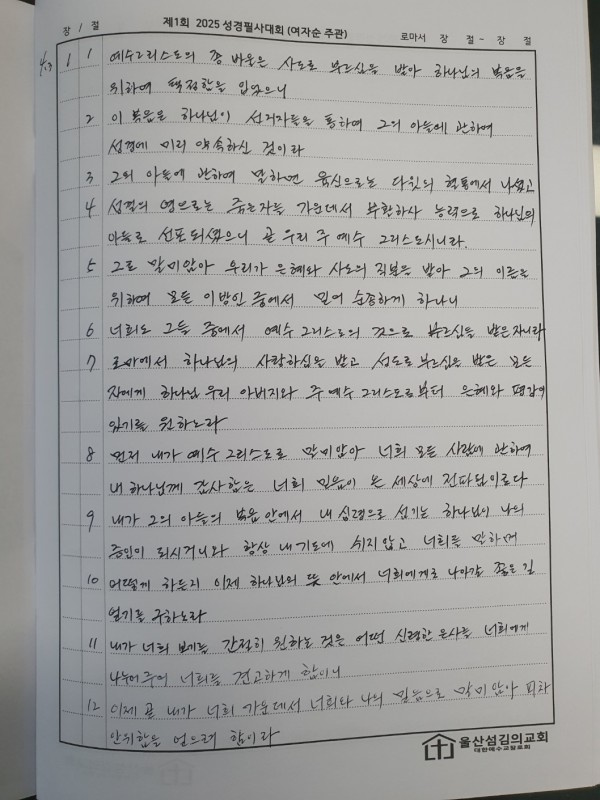 장 / 절 제1회 2025 성경필사대회 (여자순 주관) 로마서 장 절 - 장 절
4.3 1 1 예수 그리스도의 종 바울은 사도로 부르심을 받아 하나님의 복음을
위하여 택정함을 입었으니
2 이 복음은 하나님이 선지자들을 통하여 그의 아들에 관하여
성경에 미리 약속하신 것이라
3 그의 아들에 관하여 말하면 육신으로는 다윗의 혈통에서 나셨고
4 성결의 영으로는 죽은자들 가운데서 부활하사 능력으로 하나님의
아들로 선포되셨으니 곧 우리 주 예수 그리스도시니라.
5 그로 말미암아 우리가 은혜와 사도의 직분을 받아 그의 이름을
위하여 모든 이방인 중에서 믿어 순종하게 하나니
6 너희도 그들 중에서 예수 그리스도의 것으로 부르심을 받은 자니라
7 로마에서 하나님의 사랑하심을 받고 성도로 부르심을 받은 모든
자에게 하나님 우리 아버지와 주 예수 그리스도로부터 은혜와 평강이
있기를 원하노라
8 먼저 내가 예수 그리스도로 말미암아 너희 모든 사람에 관하여
내 하나님께 감사함은 너희 믿음이 온 세상에 전파됨이로다
9 내가 그의 아들의 복음 안에서 내 심령으로 섬기는 하나님이 나의
증인이 되시거니와 항상 내 기도에 쉬지 않고 너희를 말하며
10 어떻게 하든지 이제 하나님의 뜻 안에서 너희에게로 나아갈 좋은 길
얻기를 구하노라
11 내가 너희 보기를 간절히 원하는 것은 어떤 신령한 은사를 너희에게
나누어 주어 너희를 견고하게 함이니
12 이제 곧 내가 너희 가운데서 너희와 나의 믿음으로 말미암아 피차
안위함을 얻으려 함이라
울산섬김의교회
대한예수교장로회